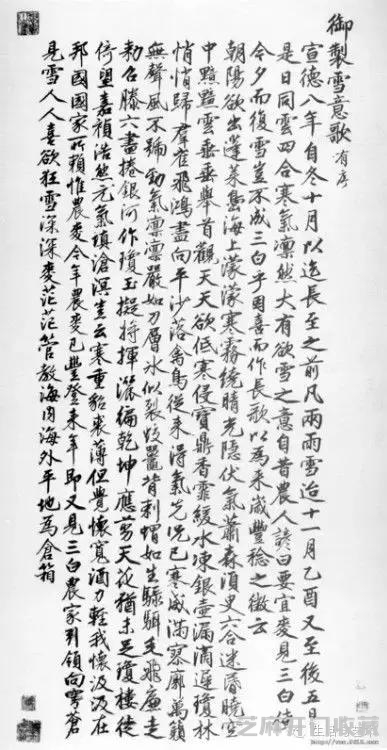 御製雪意歌有序
宣德八年自冬十月以迄長至之前凡兩雨雪迨十一月乙酉又至後五日
是日同雲四合寒氣凜然大有欲雪之意自昔農人諺曰要宜麥見三白倘
今夕而復雪豈不成三白乎因喜而作長歌以為來歲豐稔之徵云
朝陽欲出蓬萊島海上濛濛寒霧繞晴光隱伏氣蕭森須臾六合迷昏曉空
中黯黯雲垂垂舉首觀天天欲低寒侵寶鼎香霏緩水凍銀壺漏滴遲瓊林
悄悄歸羣雀飛鴻盡向平沙落禽鳥從來得氣先已寒威滿寥廓萬籟
無聲風不號勁氣凜凜嚴如刀層冰似裂蛟鼉背刺蝟如生騄駬毛飛廉走
勅召滕六盡捲銀河作瓊玉擬將揮灑徧乾坤應剪天花猶未足瓊樓徙
倚望嘉禎浩然元氣填滄溟坐云寒重貂裘薄但覺懷寬酒力輕我懷汲汲在
邦國國家所賴惟農麥今年農麥已豐登來年即又見三白農家引領向穹蒼
見雪人人喜欲狂雪深深麥茫茫管教海內海外平地為倉箱
芝麻开门收藏